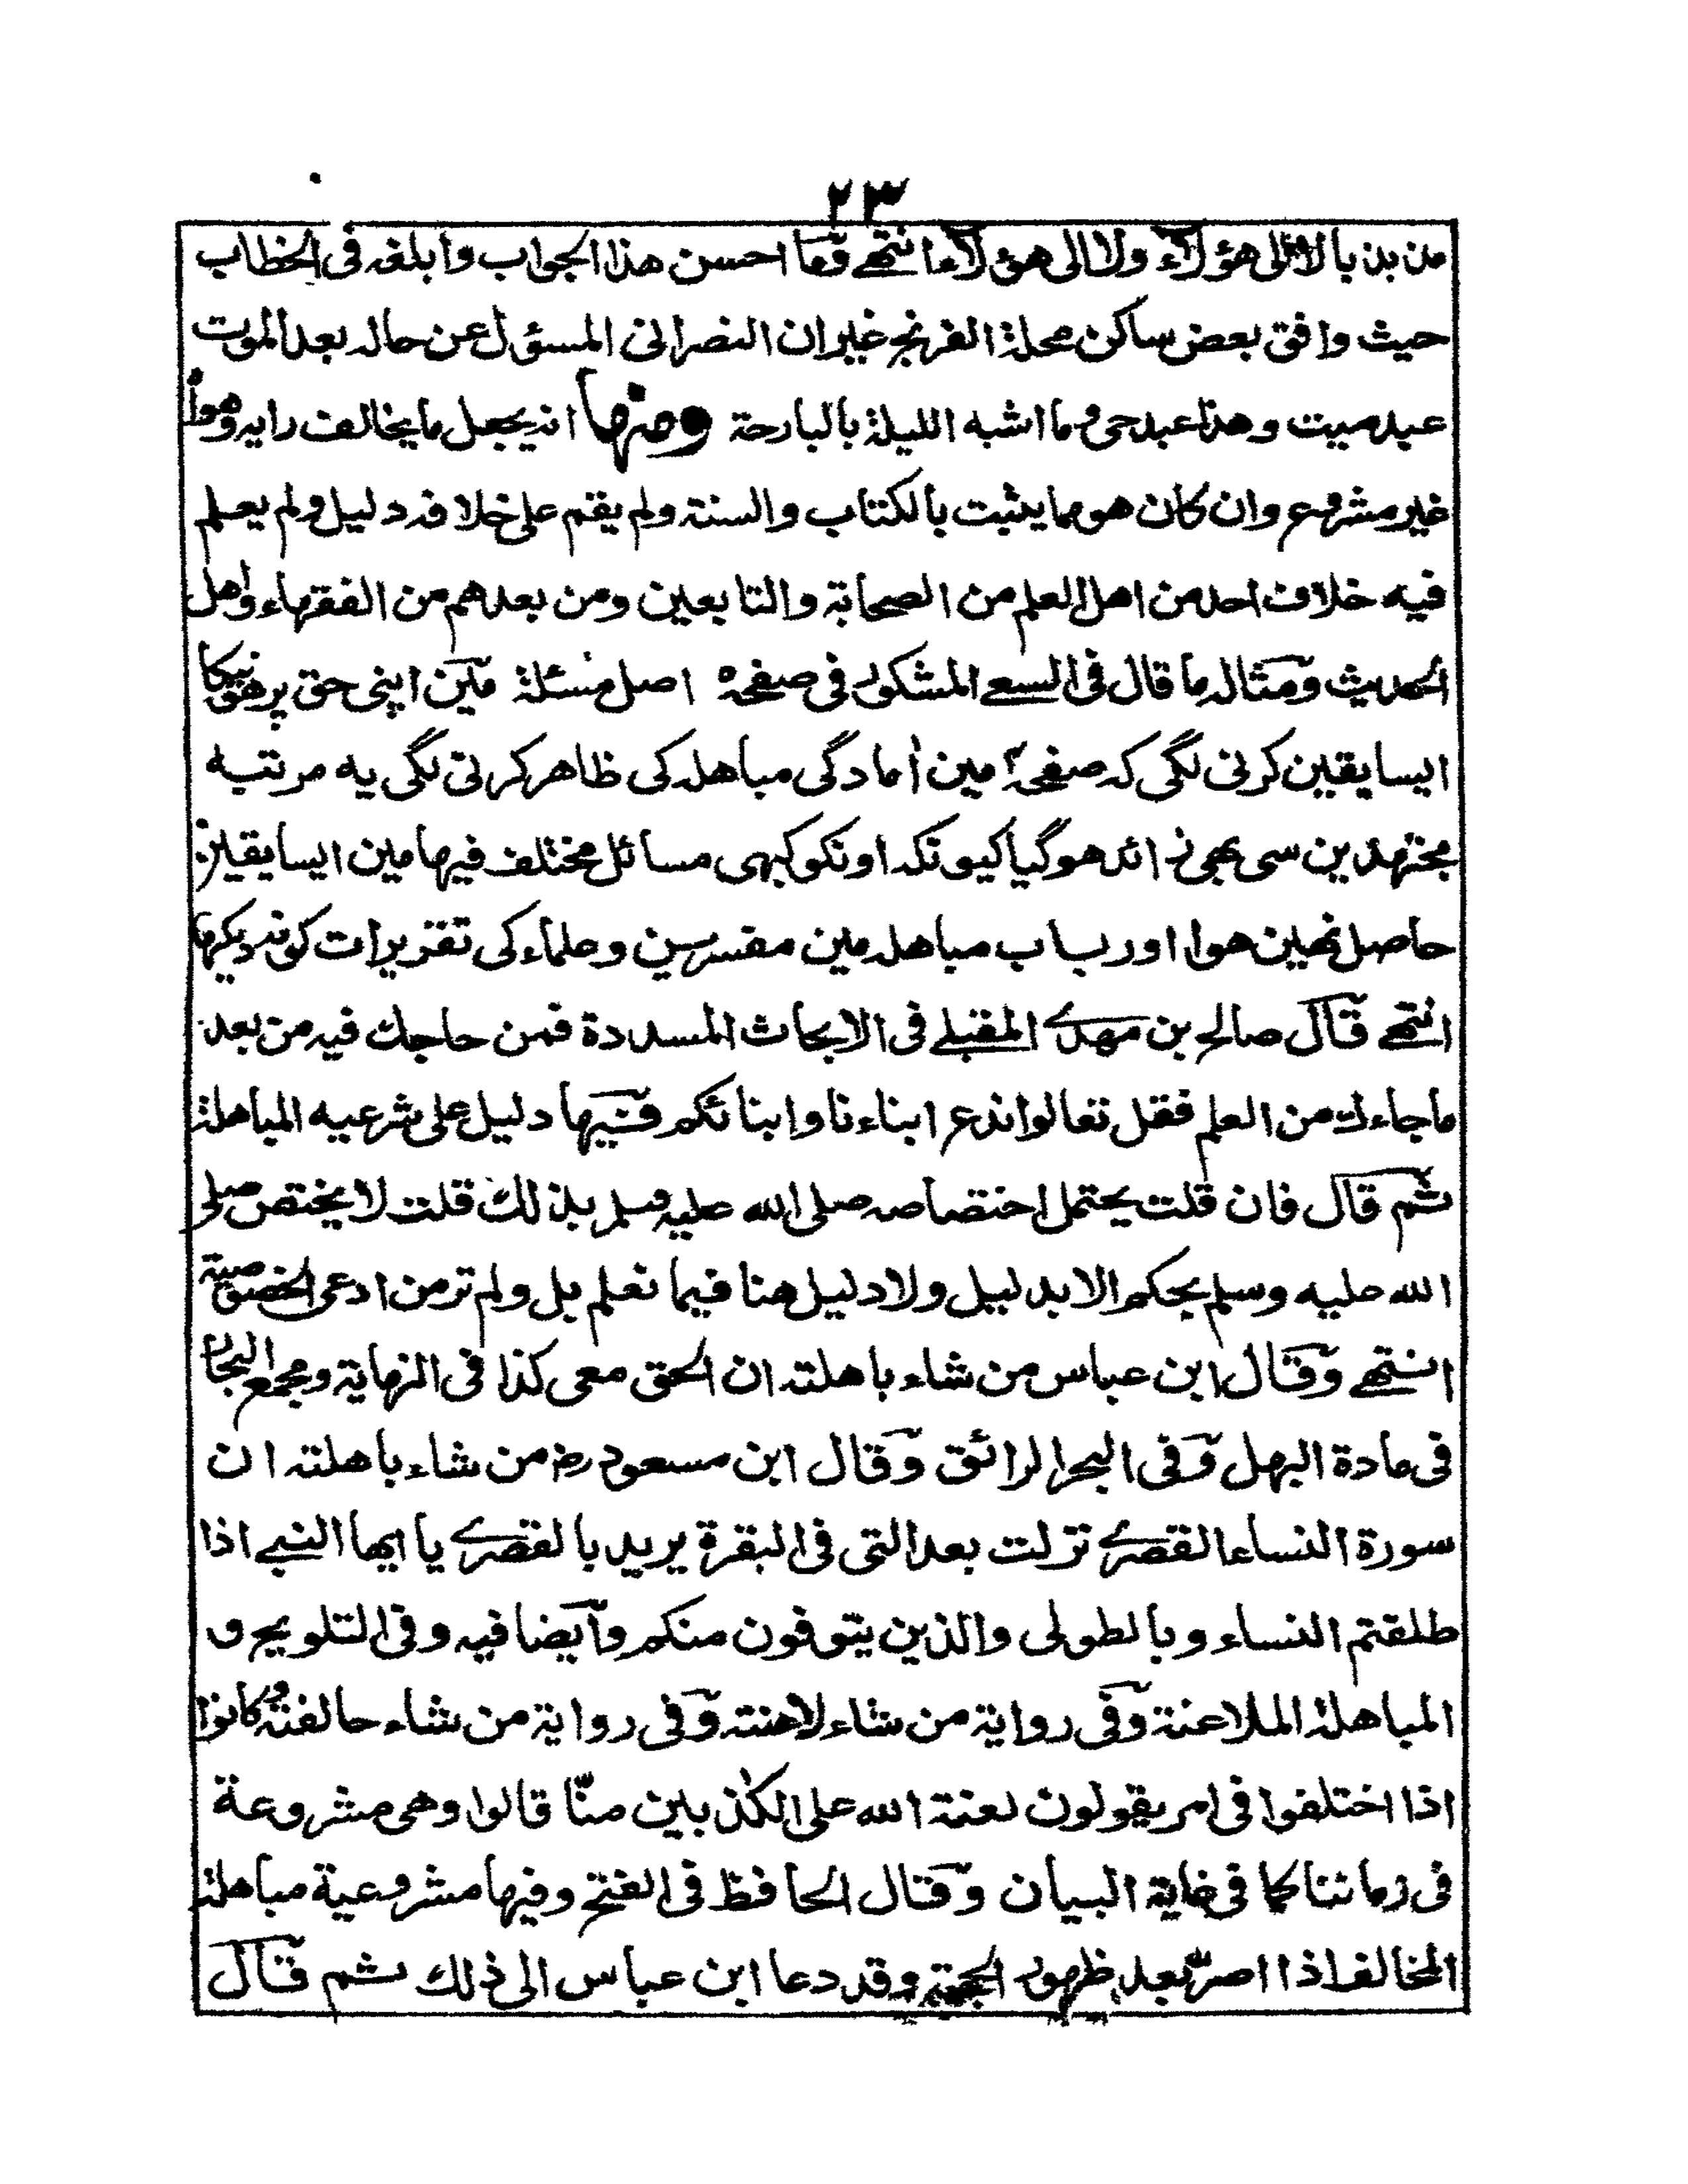 ٢٣
مذبذبا لا الى هؤلاء ولا الى هؤلاء انتهى وما احسن هذا الجواب وابلغه فى الخطاب
حيث وافق بعض ساكن محلة الفرنج غير ان النصرانى المسؤل عن حاله بعد الموت
عبد ميت وهذا عبد حى وما اشبه الليلة بالبارحة ومنها انه يجعل ما يخالف رايه وهواه
غير مشروع وان كان هو مما يثبت بالكتاب والسنة ولم يقم على خلافه دليل ولم يعلم
فيه خلاف احد من اهل العلم من الصحابة والتابعين ومن بعدهم من الفقهاء واهل
الحديث ومثاله ما قال فى السعى المشكور فى صفحه اصل مسئلة مين اپنى حق پر هونيكا
ايسا يقين كرنى لگى كه صفحہ مين امادگى مباهله كى ظاهر كرنى لگى يه مرتبه
مجتهدين سى بهى زائد هوگيا كيونكه اونكو كبهى مسائل مختلف فيها مين ايسا يقين
حاصل نهين هوا اور باب مباهله مين مفسرين و علماء كى تقريرات كو نه ديكها
انتهى قال صالح بن مهدى المقبلى فى الابحاث المسددة فمن حاجك فيه من بعد
ما جاءك من العلم فقل تعالوا ندع ابناءنا وابنائكم فيها دليل على شرعيه المباهلة
ثم قال فان قلت يحتمل اختصاصه صلى الله عليه وسلم بذلك قلت لا يختص صلى
الله عليه وسلم بحكم الا بدليل ولا دليل هنا فيما نعلم بل ولم تر من ادعى الخصوصية
انتهى وقال ابن عباس من شاء باهلته ان الحق معى كذا فى النهاية ومجمع البحار
فى مادة البهل وفى البحر الرائق وقال ابن مسعود رض من شاء باهلته ان
سورة النساء القصرى نزلت بعد التى فى البقرة يريد بالقصرى يا ايها النبى اذا
طلقتم النساء وبالطولى والذين يتوفون منكم وايضا فيه وفى التلويح و
المباهلة الملاعنة وفى رواية من شاء لاعنته وفى رواية من شاء حالفته وكانوا
اذا اختلفوا فى امر يقولون لعنة الله على الكذبين منّا قالوا وهى مشروعة
فى زماننا كما فى غاية البيان وقال الحافظ فى الفتح وفيها مشروعية مباهلة
المخالف اذا اصرّ بعد ظهور الحجة وقد دعا ابن عباس الى ذلك ثم قال